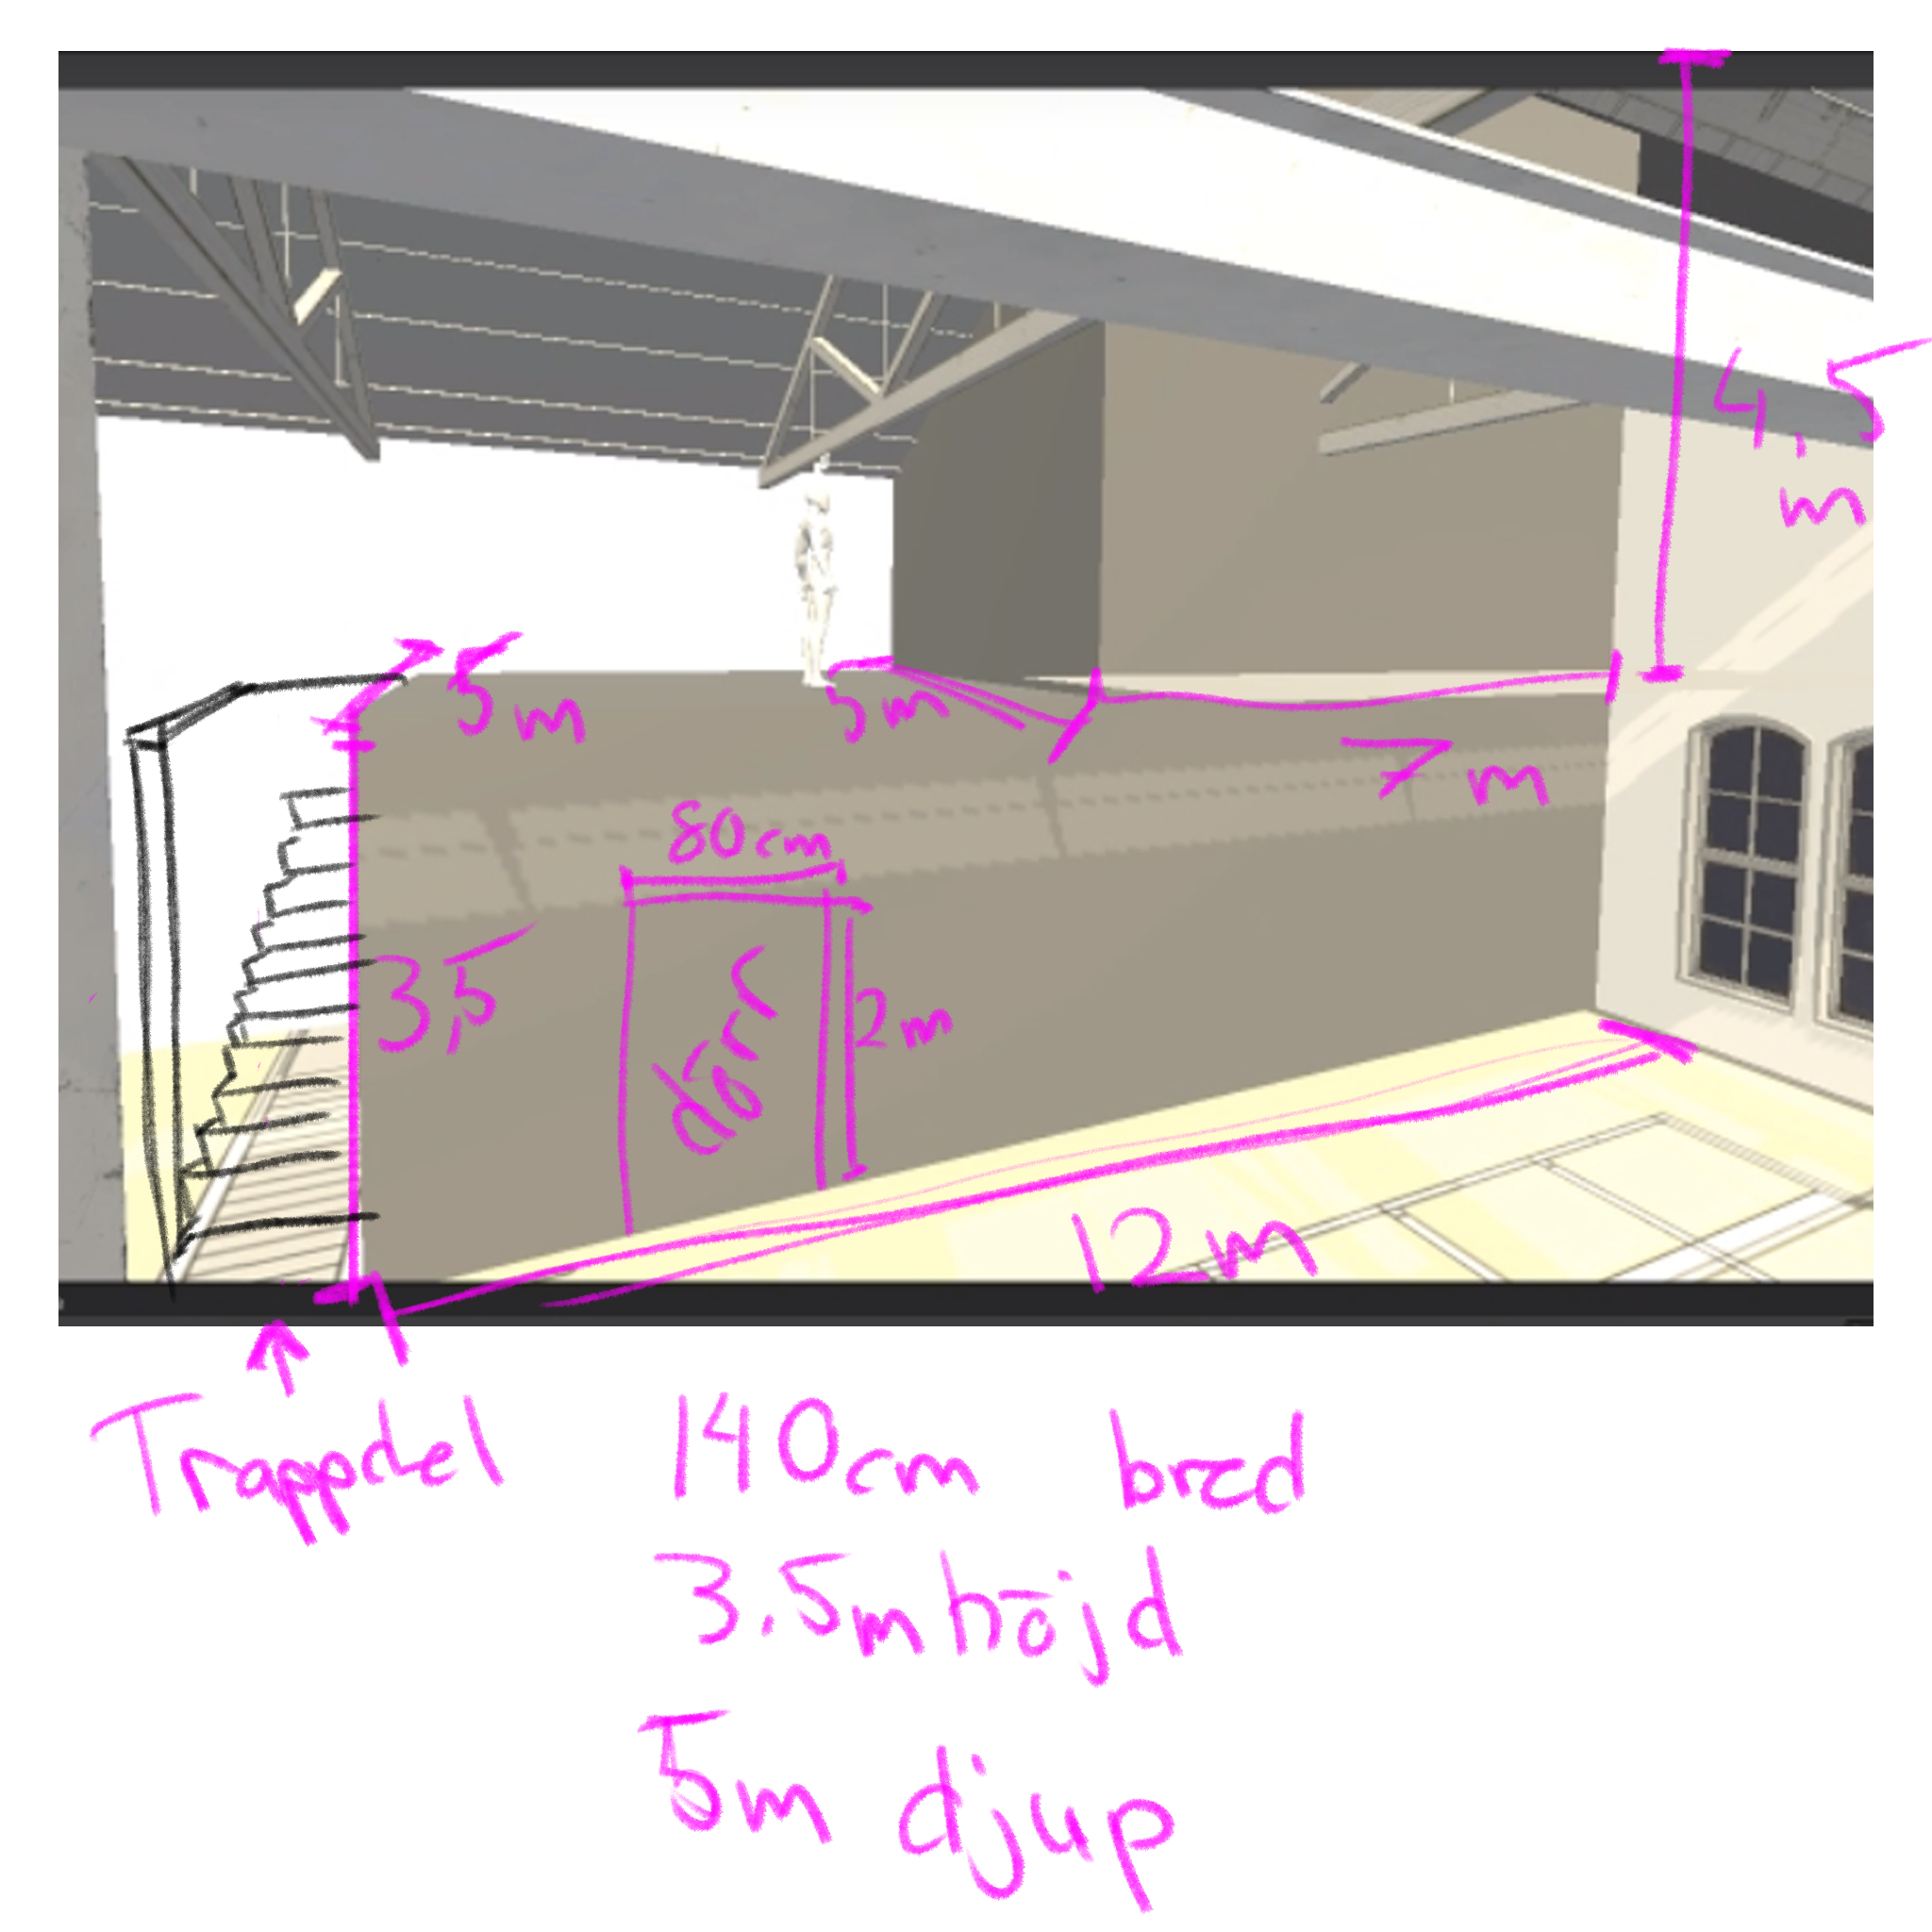 4,5
m
5m
5m
7m
80cm
3,5
dörr
2m
12m
Trappdel 140cm bred
3.5m höjd
5m djup